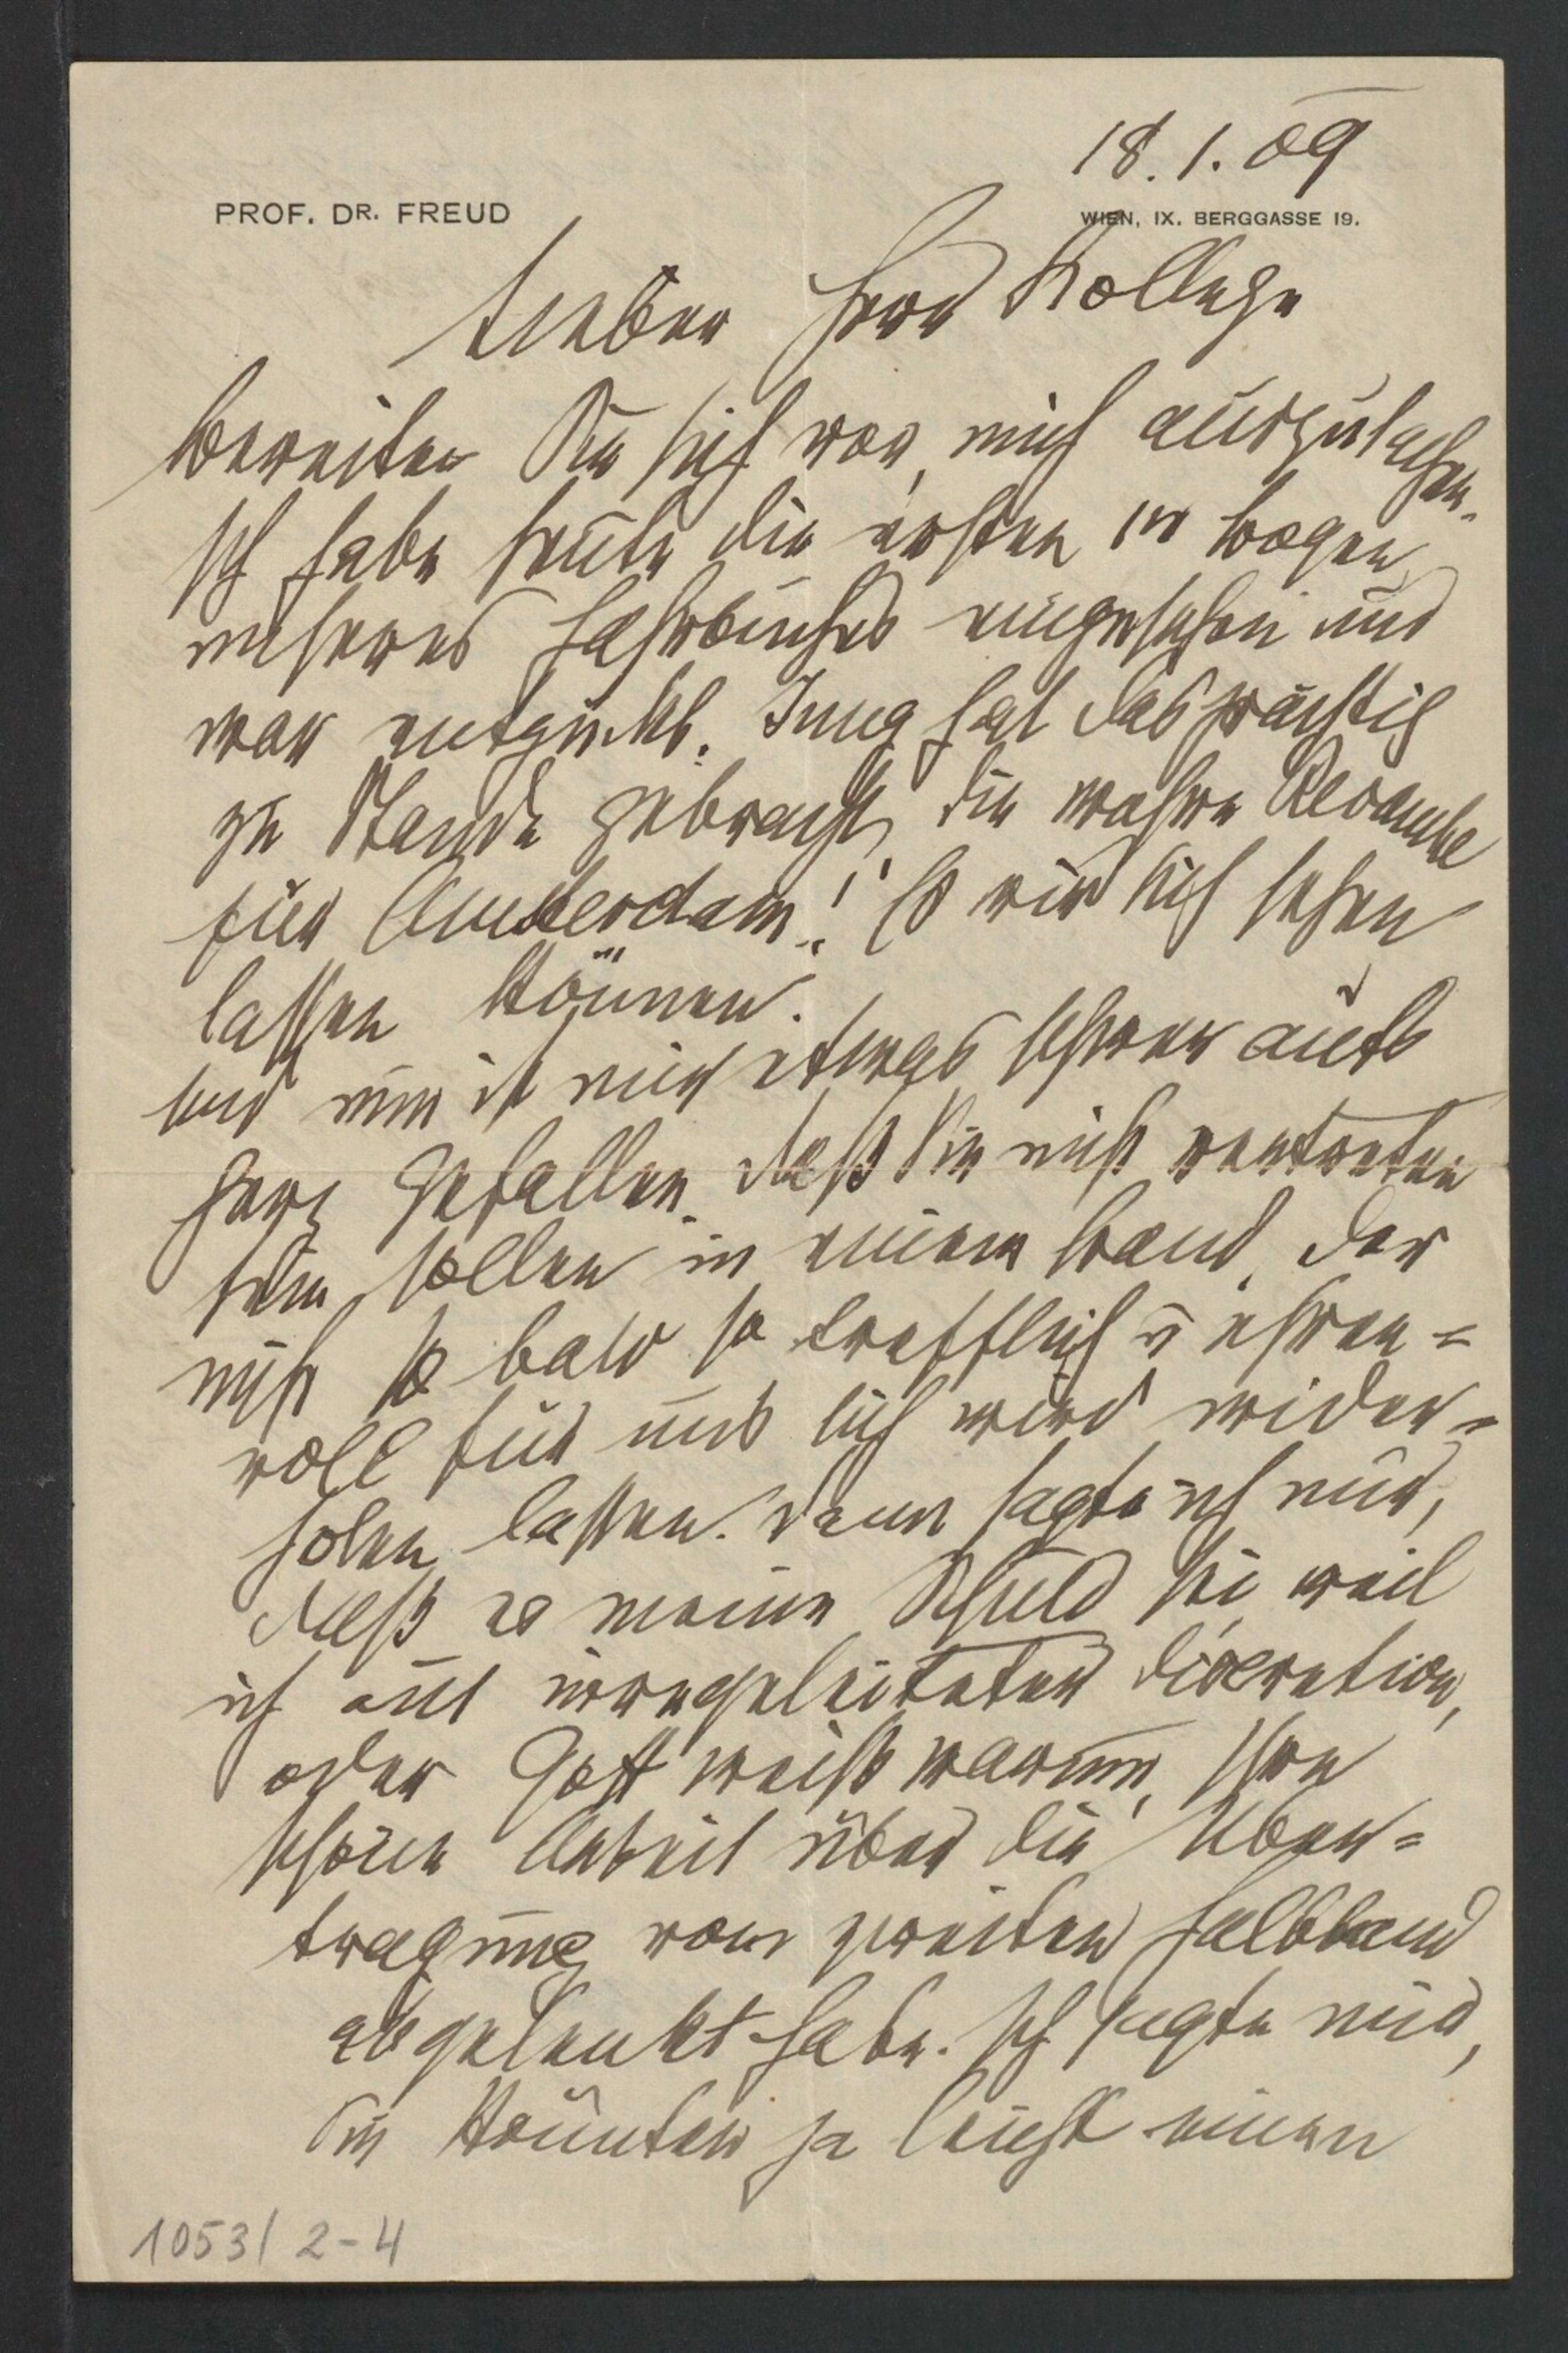 18. 1. 09
PROF. DR. FREUD
WIEN, IX. BERGGASSE 19.
Lieber Herr Kollege
Bereiten Sie sich vor, mich auszulachen.
Ich habe heute die ersten 10 Bogen
unseres Jahrbuches eingesehen und
war entzückt. Jung hat das prächtig
zu Stande gebracht, die wahre Revanche
für Amsterdam! Es wird sich sehen
lassen können.
Und nun ist mir etwas schwer aufs
Herz gefallen, daß Sie nicht vertreten
sein sollen in einem Band, der
nicht so bald so trefflich u ehren=
voll für uns sich wird wieder=
holen lassen. Dann sagte ich mir,
daß es meine Schuld sei weil
ich aus irregeleiteter Discretion,
oder Gott weiß warum, Ihre
schöne Arbeit über die Über=
tragung vom zweiten Halbband
abgelenkt habe. Ich sagte mir,
Sie könnten ja leicht einen
1053/ 2-4